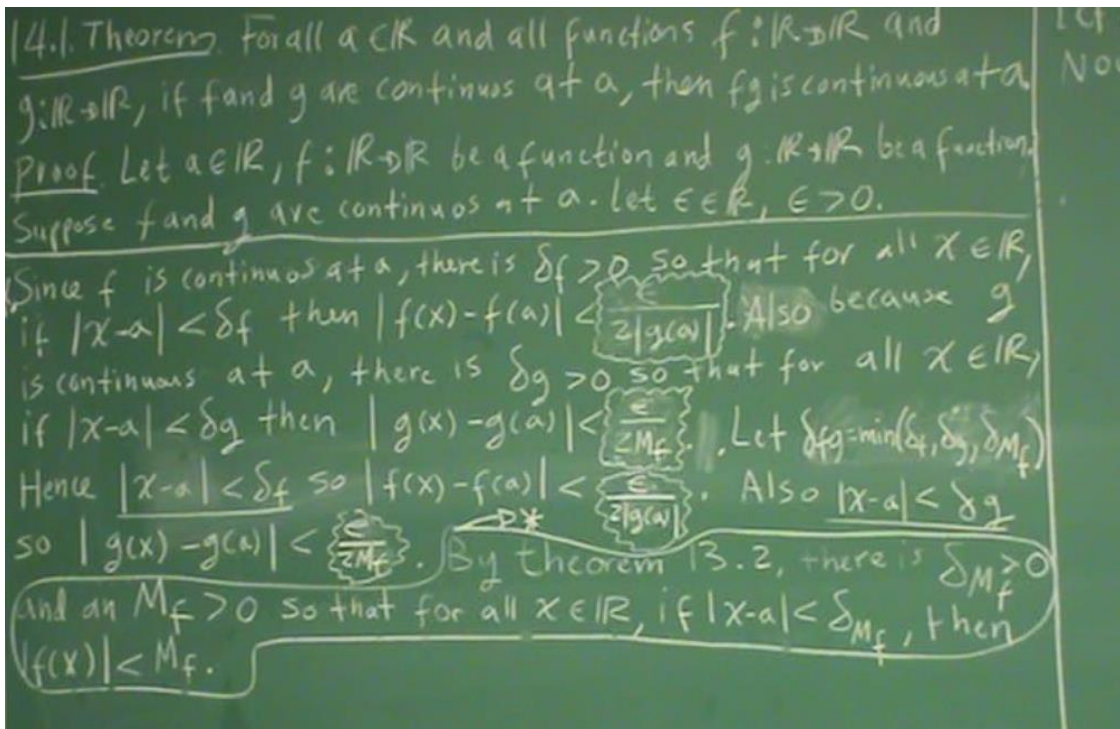 14.1. Theorem. For all a ∈ ℝ and all functions f: ℝ→ℝ and
g: ℝ→ℝ, if f and g are continuos at a, then fg is continuous at a.
Proof. Let a ∈ ℝ, f: ℝ→ℝ be a function and g: ℝ→ℝ be a function.
Suppose f and g are continuos at a. Let ϵ ∈ ℝ, ϵ > 0.
Since f is continuos at a, there is δ_f > 0 so that for all x ∈ ℝ,
if |x-a| < δ_f then |f(x)-f(a)| < ϵ/(2|g(a)|). Also because g
is continuous at a, there is δ_g > 0 so that for all x ∈ ℝ,
if |x-a| < δ_g then |g(x)-g(a)| < ϵ/(2M_f). Let δ_fg = min(δ_f, δ_g, δ_{M_f})
Hence |x-a| < δ_f so |f(x)-f(a)| < ϵ/(2|g(a)|). Also |x-a| < δ_g
so |g(x)-g(a)| < ϵ/(2M_f). * By theorem 13.2, there is δ_{M_f} > 0
and an M_f > 0 so that for all x ∈ ℝ, if |x-a| < δ_{M_f}, then
|f(x)| < M_f.